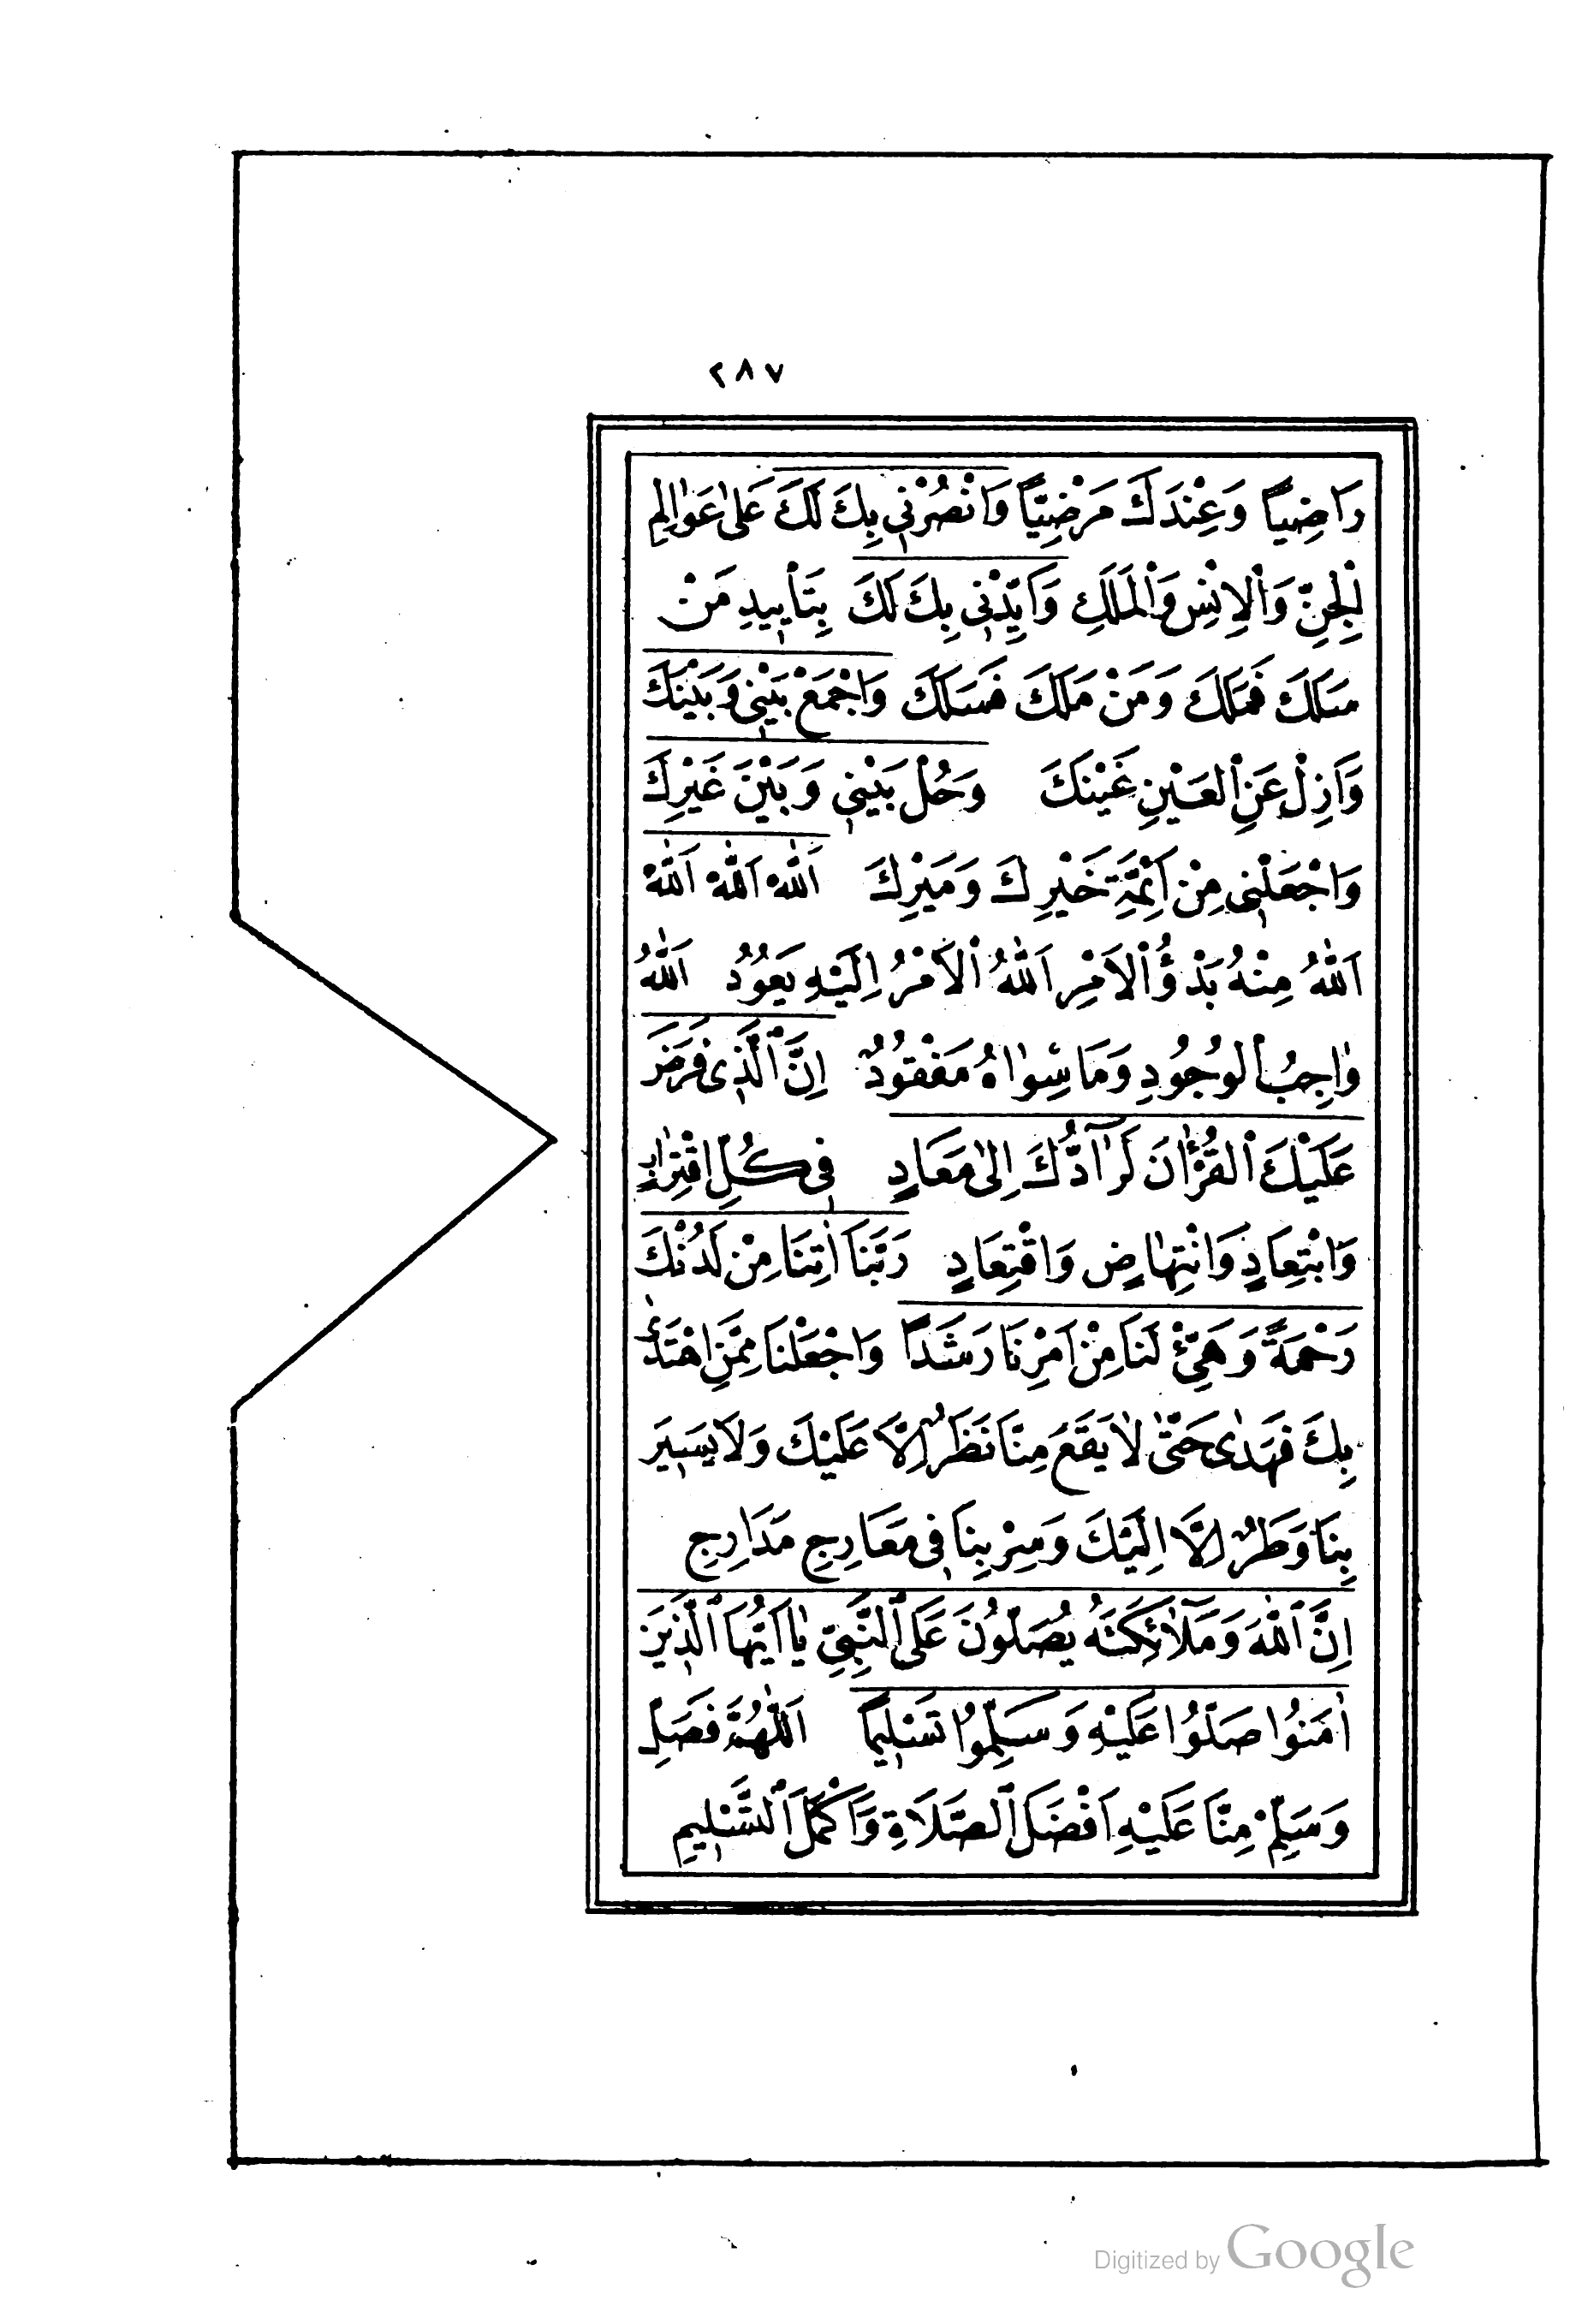 ٢٨٧
رَاضِيًا وَعِنْدَكَ مَرْضِيًّا وَانْصُرْنِي بِكَ لَكَ عَلٰى عَوٰالِمِ
الْجِنِّ وَالْاِنْسِ وَالْمَلَكِ وَاَيِّدْنِي بِكَ لَكَ بِتَأْيِيدِ مَنْ
سَلَكَ فَمَلَكَ وَمَنْ مَلَكَ فَسَلَكَ وَاجْمَعْ بَيْنِي وَبَيْنَكَ
وَاَزِلْ عَنِ الْعَيْنِ غَيْنَكَ وَحُلْ بَيْنِي وَبَيْنَ غَيْرِكَ
وَاجْعَلْنِي مِنْ اَئِمَّةِ خَيْرِكَ وَمَيْرِكَ اَللّٰهْ اَللّٰهْ اَللّٰهْ
اَللّٰهُ مِنْهُ بَدْؤُ الْاَمْرِ اَللّٰهُ الْاَمْرُ اِلَيْهِ يَعُودُ اَللّٰهُ
وٰاجِبُ الْوُجُودِ وَمَا سِوٰاهُ مَفْقُودٌ اِنَّ الَّذِى فَرَضَ
عَلَيْكَ الْقُرْاٰنَ لَرَآدُّكَ اِلٰى مَعَادٍ فِى كُلِّ اقْتِرٰابٍ
وَابْتِعَادٍ وَانْتِهٰاضٍ وَاقْتِعَادٍ رَبَّنَا اٰتِنَا مِنْ لَدُنْكَ
رَحْمَةً وَهَيِّئْ لَنَا مِنْ اَمْرِنَا رَشَدًا وَاجْعَلْنَا مِمَّنِ اهْتَدٰى
بِكَ فَهَدٰى حَتّٰى لٰا يَقَعَ مِنَّا نَظَرٌ اِلَّا عَلَيْكَ وَلَا يَسِيرَ
بِنَا وَطَرٌ اِلَّا اِلَيْكَ وَسِرْ بِنَا فِى مَعَارِجِ مَدَارِجِ
اِنَّ اللّٰهَ وَمَلٰآئِكَتَهُ يُصَلُّونَ عَلَى النَّبِيِّ يٰا اَيُّهَا الَّذِينَ
اٰمَنُوا صَلُّوا عَلَيْهِ وَسَلِّمُوا تَسْلِيمًا اَللّٰهُمَّ فَصَلِّ
وَسَلِّمْ مِنَّا عَلَيْهِ اَفْضَلَ الصَّلَاةِ وَاَكْمَلَ التَّسْلِيمِ
Digitized by Google